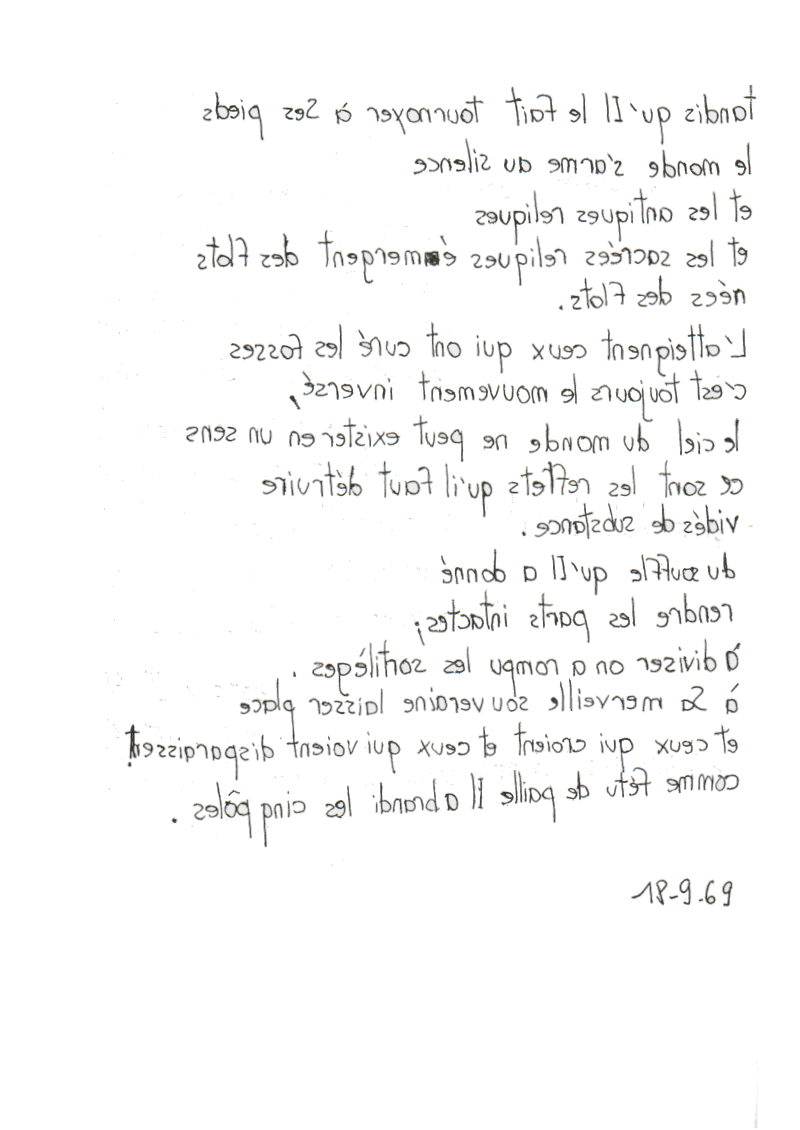 tandis qu'Il le fait tournoyer à Ses pieds
le monde s'arme au silence
et les antiques reliques
et les sacrées reliques émergent des flots
nées des flots.
L'atteignent ceux qui ont curé les fosses
c'est toujours le mouvement inversé,
le ciel du monde ne peut exister en un sens
ce sont les reflets qu'il faut détruire
vidés de substance.
du souffle qu'Il a donné
rendre les parts intactes;
à diviser on a rompu les sortiléges.
à Sa merveille souveraine laisser place
et ceux qui croient et ceux qui voient disparaissent
comme fétu de paille Il a brandi les cinq pôles.
18-9-69